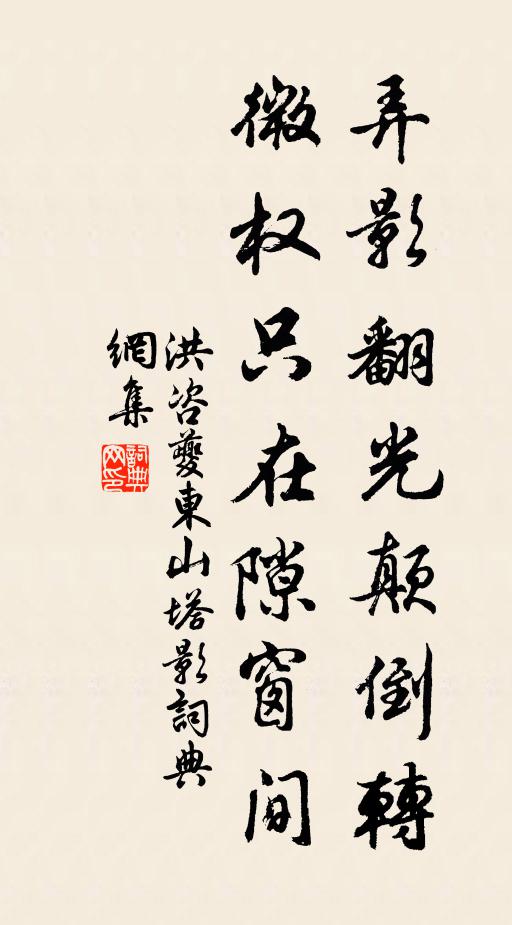 弄影翻光顛倒轉
微权只在隙窗间
洪咨夔東山塔影詞典
網集
詞典
网印